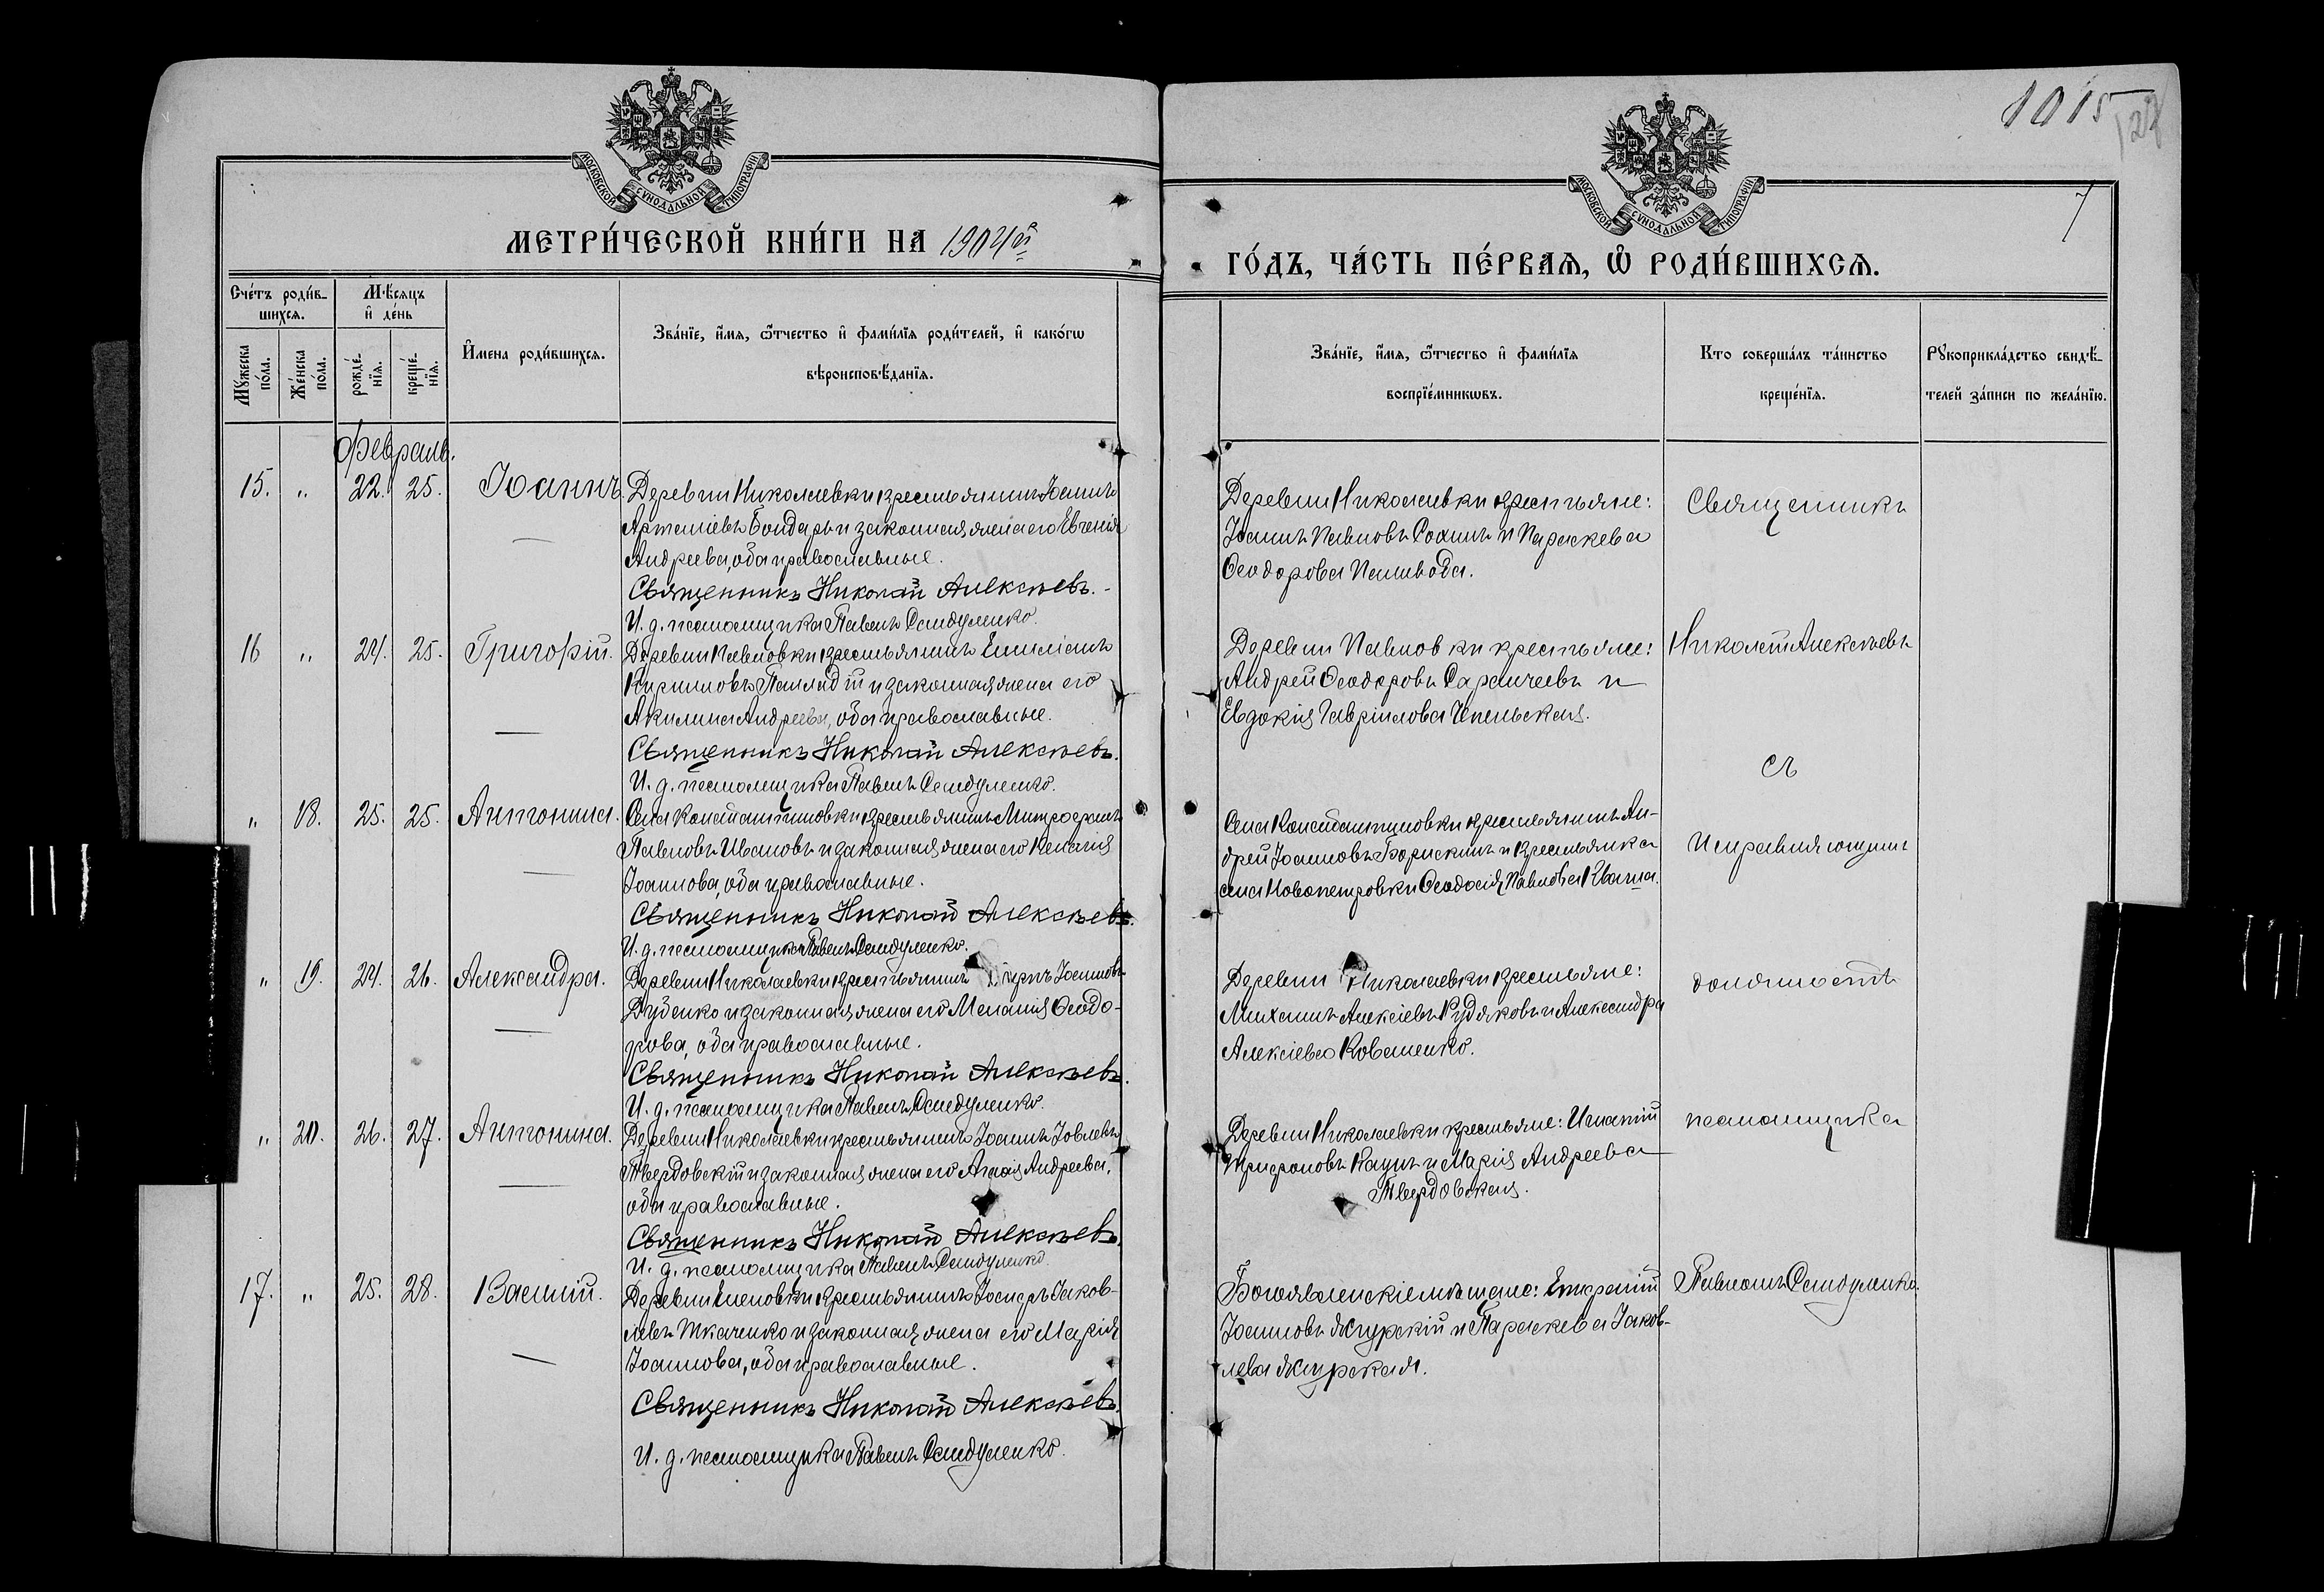 1015
128
МОСКОВСКОЙ СѴНОДАЛЬНОЙ ТИПОГРАФІИ
МОСКОВСКОЙ СѴНОДАЛЬНОЙ ТИПОГРАФІИ
7
МЕТРИ́ЧЕСКОЙ КНИ́ГИ НА 1904й
ГО́ДЪ, ЧА́СТЬ ПЕ́РВАѦ, Ѽ РОДИ́ВШИХСѦ.
Сче́тъ роди́в-
шихсѧ.
Мꙋ́жеска по́ла.
Же́нска по́ла.
Мѣ́сяцъ
и҆ де́нь
рожде́-
нїѧ.
креще́-
нїѧ.
И҆мена роди́вшихсѧ.
Зва́нїе, и҆́мѧ, ѻ҆́тчество и҆ фами́лїѧ роди́телей, и҆ како́гѡ
вѣроисповѣ́данїѧ.
Зва́нїе, и҆́мѧ, ѻ҆́тчество и҆ фами́лїѧ
воспрїе́мникѡвъ.
Кто соверша́лъ та́инство
креще́нїѧ.
Рꙋкоприкла́дство свидѣ́-
телей за́писи по жела́нїю.
Февраль.
15. " 22. 25. Іоаннъ.
Деревни Николаевки крестьянинъ Іоаннъ
Артеміевъ Бондарь и законная жена его Евгенія
Андреева, оба православные.
Священникъ Николай Алексѣевъ.
И. д. псаломщика Павелъ Сандуленко.
Деревни Николаевки крестьяне:
Іоаннъ Павловъ Сохинъ и Параскева
Ѳеодорова Паливода.
Священникъ
16 " 24. 25. Григорій.
Деревни Павловки крестьянинъ Емиліанъ
Кирилловъ Палладій и законная жена его
Акилина Андреева, оба православные.
Священникъ Николай Алексѣевъ.
И. д. псаломщика Павелъ Сандуленко.
Деревни Павловки крестьяне:
Андрей Ѳеодоровъ Сарамчеевъ и
Евдокія Гавріилова
Николай Алексѣевъ
съ
" 18. 25. 25. Антонина.
Села Константиновки крестьянинъ Митрофанъ
Павловъ Ивановъ и законная жена его Ксенія
Іоаннова, оба православные.
Священникъ Николай Алексѣевъ.
И. д. псаломщика Павелъ Сандуленко.
Села Константиновки крестьянинъ Ан-
дрей Іоанновъ Борискинъ и крестьянка
села Новопетровки Ѳеодосія Павлова Кваша.
Исправляющимъ
" 19. 24. 26. Александра.
Деревни Николаевки крестьянинъ Іоанновъ
Дуденко и законная жена его Меланія Ѳеодо-
рова, оба православные.
Священникъ Николай Алексѣевъ.
И. д. псаломщика Павелъ Сандуленко.
Деревни Николаевки крестьяне:
Михаилъ Алексіевъ Рудяковъ и Александра
Алексіева Коваленко.
должность
" 20. 26. 27. Антонина.
Деревни Николаевки крестьянинъ Іоаннъ Іовлевъ
Твердовскій и законная жена его Агаѳія Андреева,
оба православные.
Священникъ Николай Алексѣевъ.
И. д. псаломщика Павелъ Сандуленко.
Деревни Николаевки крестьяне: Игнатій
Трифоновъ Кацъ и Марія Андреева
Твердовская.
псаломщика
17. " 25. 28. Василій.
Деревни Еленовки крестьянинъ Іосифъ Іаков-
левъ Ткаченко и законная жена его Марія
Іоаннова, оба православные.
Священникъ Николай Алексѣевъ.
И. д. псаломщика Павелъ Сандуленко.
Богоявленскіе мѣщане: Евграфій
Іоанновъ Жчурскій и Параскева Іаков-
лева Жчурская.
Павломъ Сандуленко.